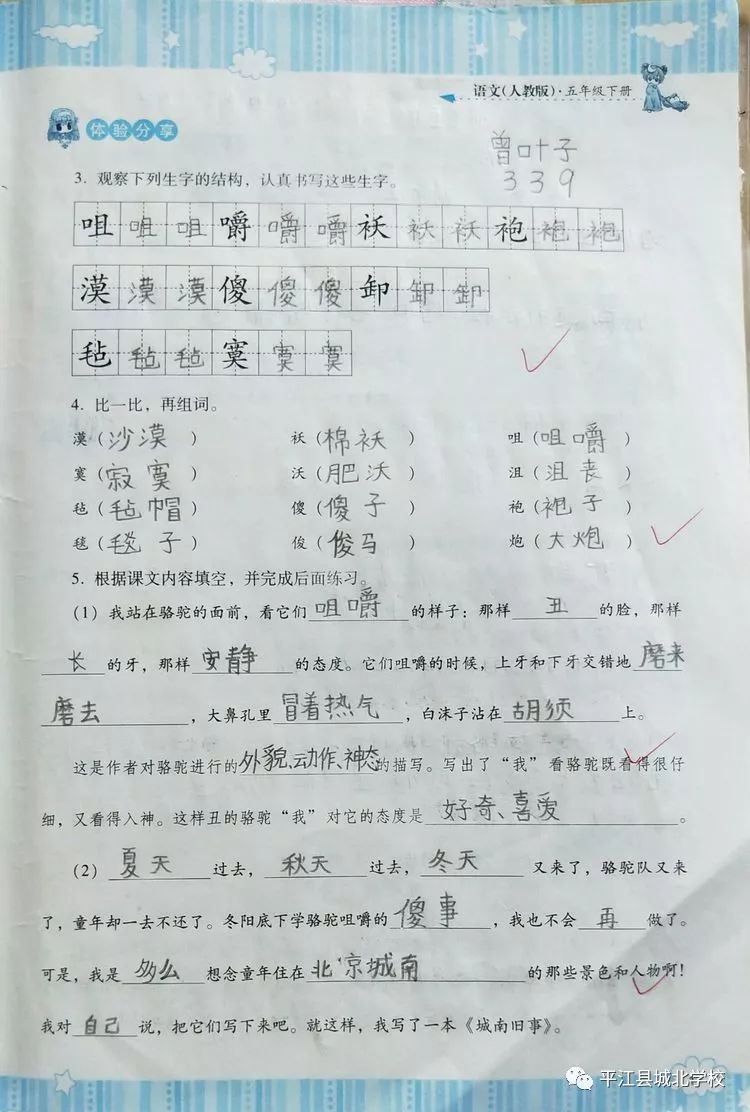 语文(人教版)·五年级下册
体验分享
曾叶子
339
3. 观察下列生字的结构，认真书写这些生字。
咀咀咀嚼嚼嚼袄袄袄袍袍袍
漠漠漠傻傻傻卸卸卸
毡毡毡寞寞寞
4. 比一比，再组词。
漠（沙漠） 袄（棉袄） 咀（咀嚼）
寞（寂寞） 沃（肥沃） 沮（沮丧）
毡（毡帽） 傻（傻子） 袍（袍子）
毯（毯子） 俊（俊马） 炮（大炮）
5. 根据课文内容填空，并完成后面练习。
(1) 我站在骆驼的面前，看它们咀嚼的样子：那样丑的脸，那样
长的牙，那样安静的态度。它们咀嚼的时候，上牙和下牙交错地磨来
磨去，大鼻孔里冒着热气，白沫子沾在胡须上。
这是作者对骆驼进行的外貌、动作、神态的描写。写出了“我”看骆驼既看得很仔
细，又看得入神。这样丑的骆驼“我”对它的态度是好奇、喜爱。
(2) 夏天过去，秋天过去，冬天又来了，骆驼队又来
了，童年却一去不还了。冬阳底下学骆驼咀嚼的傻事，我也不会再做了。
可是，我是多么想念童年住在北京城南的那些景色和人物啊！
我对自己说，把它们写下来吧。就这样，我写了一本《城南旧事》。
平江县城北学校